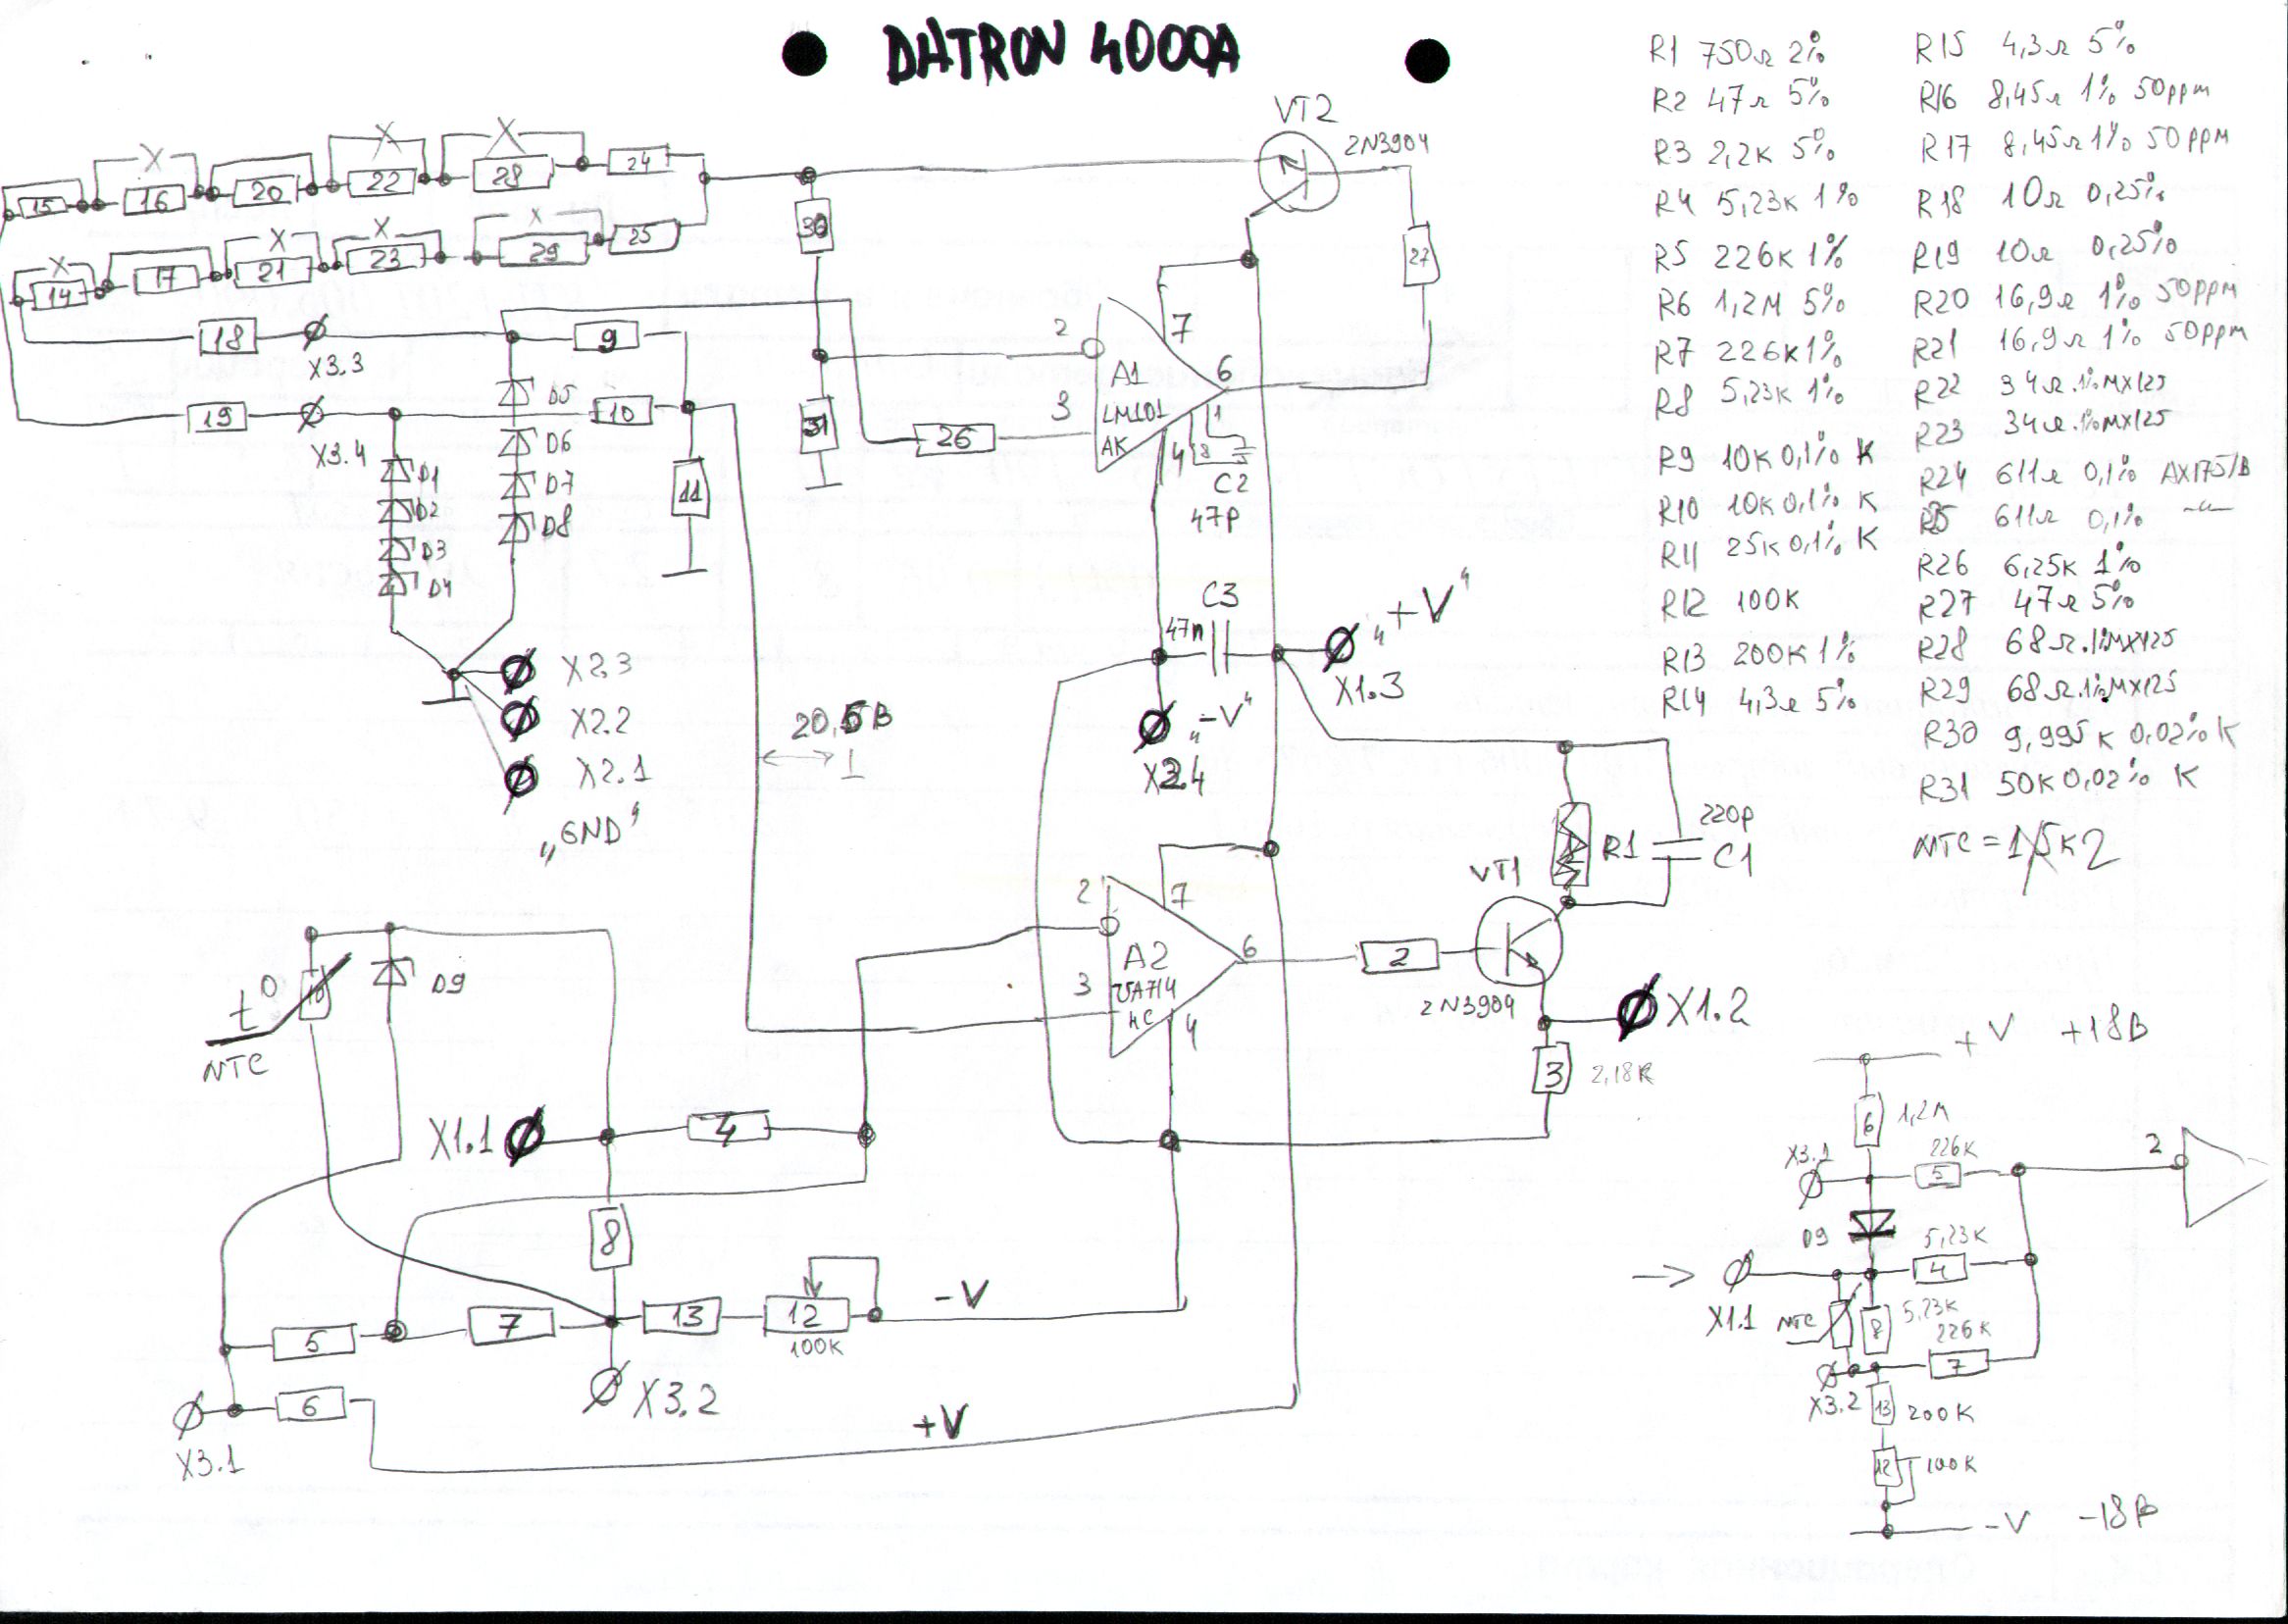 DATRON 4000A
R1 750Ω 2%
R2 47Ω 5%
R3 2,2K 5%
R4 5,23K 1%
R5 226K 1%
R6 1,2M 5%
R7 226K 1%
R8 5,23K 1%
R9 10K 0,1% K
R10 10K 0,1% K
R11 25K 0,1% K
R12 100K
R13 200K 1%
R14 4,3Ω 5%
R15 4,3Ω 5%
R16 8,45Ω 1% 50ppm
R17 8,45Ω 1% 50ppm
R18 10Ω 0,25%
R19 10Ω 0,25%
R20 16,9Ω 1% 50ppm
R21 16,9Ω 1% 50ppm
R22 34Ω.1%MX125
R23 34Ω.1%MX125
R24 611Ω 0,1% AX175/B
R25 611Ω 0,1% -"-
R26 6,25K 1%
R27 47Ω 5%
R28 68Ω.1%MX125
R29 68Ω.1%MX125
R30 9,995K 0,02% K
R31 50K 0,02% K
NTC = 1,5K2
VT2
2N3904
15 X 16 20 X 22 X 28 24
X 14 17 X 21 X 23 X 29 25
30
27
18
X3.3
9
19
X3.4
10
31
11
26
2
3
7
A1
LM101
AK
6
4
8
1
C2
47P
D5
D6
D7
D8
D1
D2
D3
D4
X2.3
X2.2
X2.1
„GND"
20,5В
C3
47n
„+V"
X1.3
„-V"
X2.4
220P
C1
R1
VT1
2N3904
2
3
7
A2
UA714
HC
6
4
2
X1.2
3
2,18K
t°
NTC
D9
X1.1
4
8
5
7
13
12
100K
-V
X3.2
6
X3.1
+V
+V +18В
6 1,2M
X3.1
226K
5
2
D9
5,23K
4
X1.1
NTC
8
5,23K
226K
7
X3.2
13 200K
12 100K
-V -18В